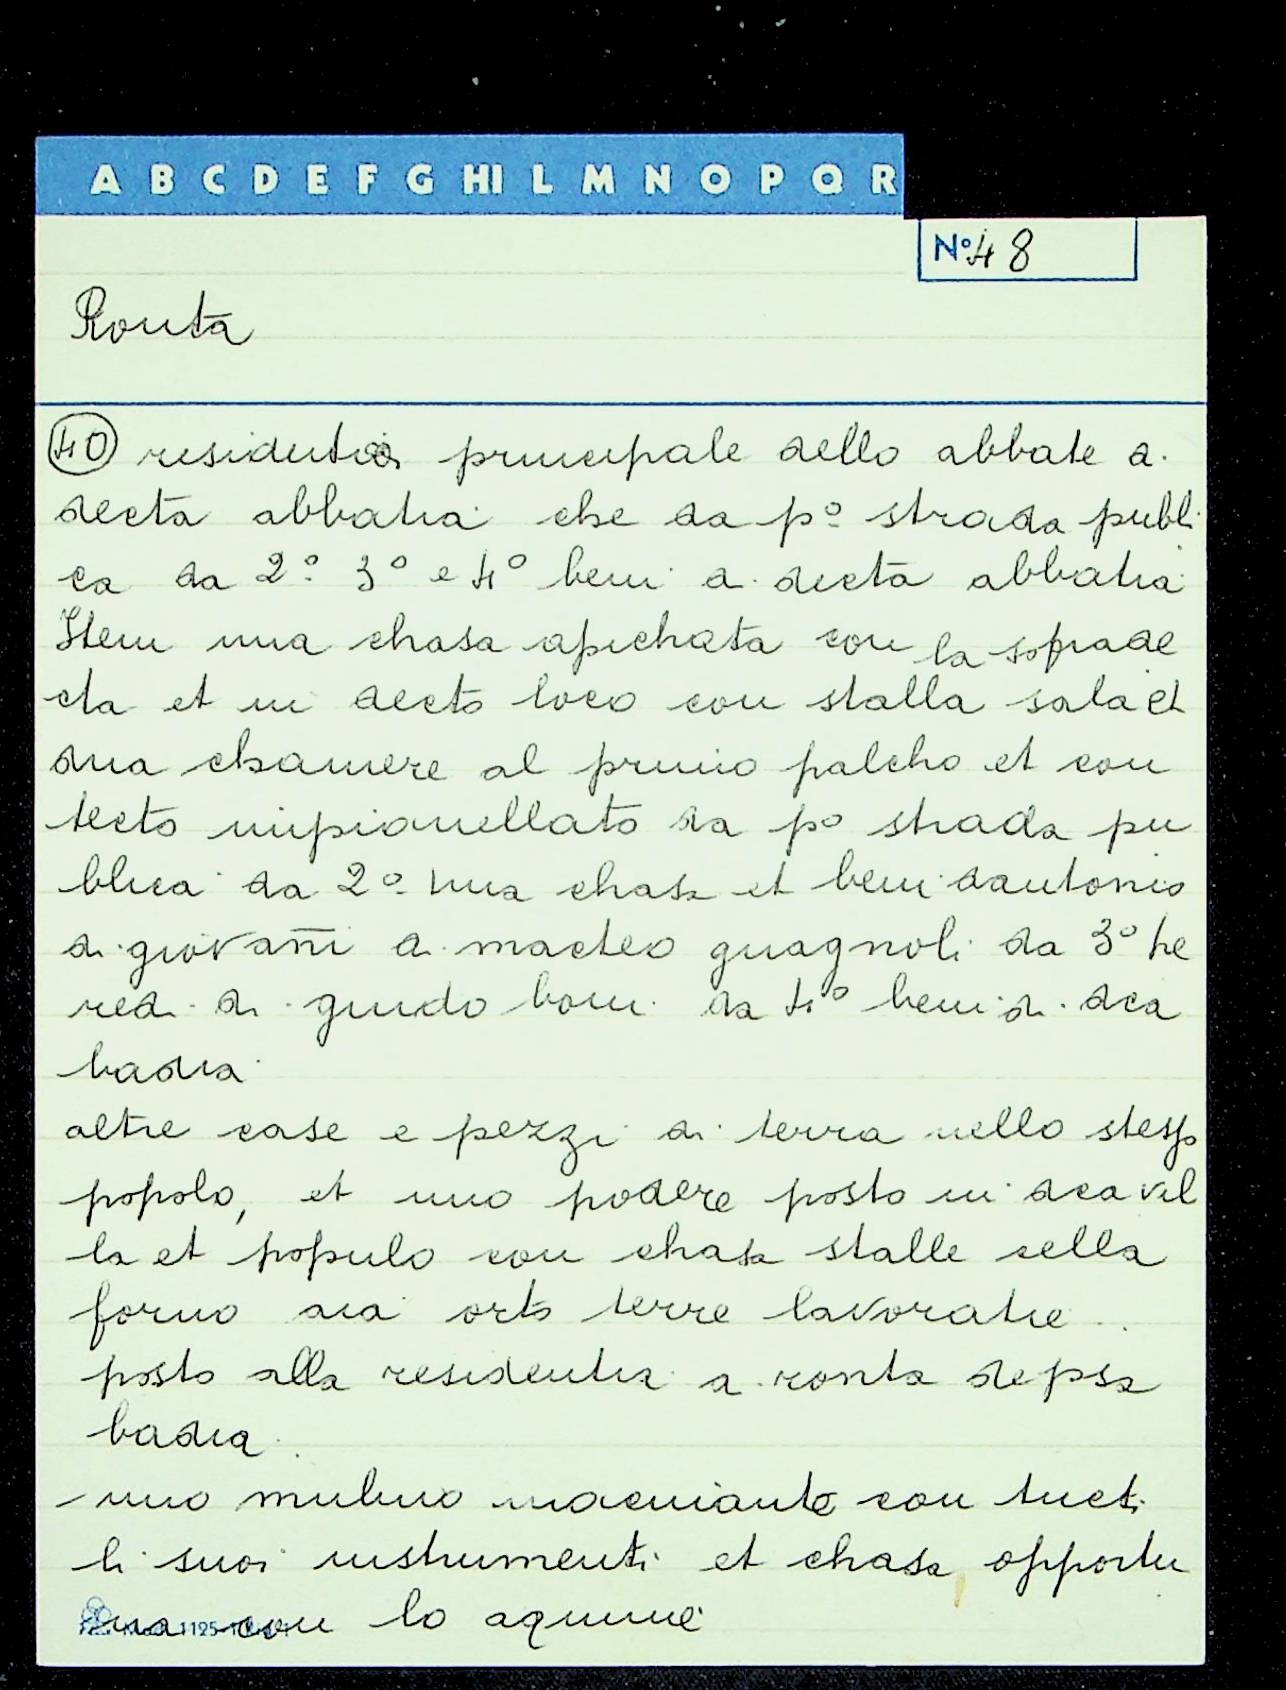 A B C D E F G HI L M N O P Q R
N° 48
Ronta
40 residentia principale dello abbate di
decta abbatia che da p° strada publi
ca da 2° 3° e 4° beni di decta abbatia
Item una chasa apichata con la soprade
cta et in decto loco con stalla sala et
dua chamere al primo palcho et con
tecto impianellato da p° strada pu
blica da 2° una chasa et beni dantonio
di giovañi di macteo guagnoli da 3° he
redi di guido boni da 4° beni di dca
badia
altre case e pezzi di terra nello stesso
popolo, et uno podere posto in dca vil
la et populo con chasa stalle cella
forno aia orto terre lavoratie ..
posto alla residentia a ronta depsa
badia
- uno mulino macinante con tucti
li suoi instrumenti et chasa opportu
na con lo aquime